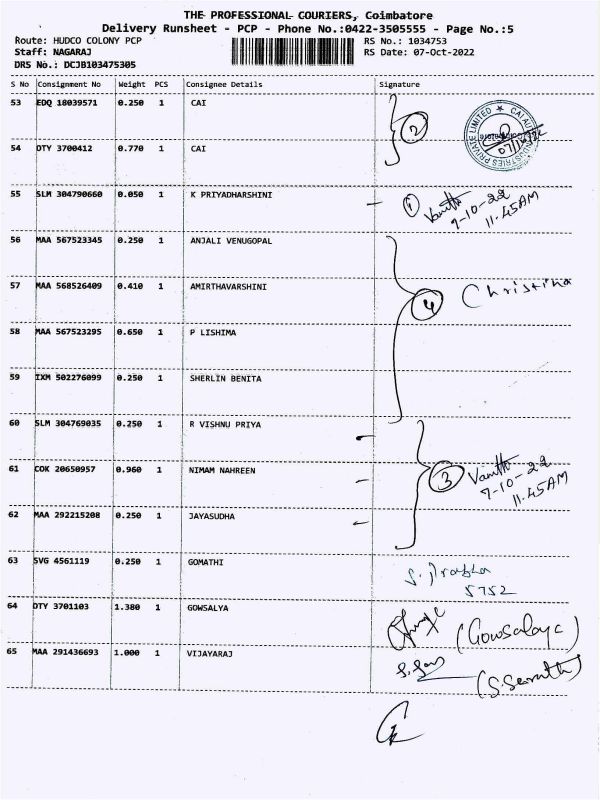 THE PROFESSIONAL COURIERS, Coimbatore
Delivery Runsheet - PCP - Phone No.:0422-3505555 - Page No.:5
Route: HUDCO COLONY PCP RS No.: 1034753
Staff: NAGARAJ RS Date: 07-Oct-2022
DRS No.: DCJB103475305
S No Consignment No Weight PCS Consignee Details Signature
53 EDQ 18039571 0.250 1 CAI
2
54 DTY 3700412 0.770 1 CAI
55 SLM 304790660 0.050 1 K PRIYADHARSHINI 1
7-10-22
11.45AM
56 MAA 567523345 0.250 1 ANJALI VENUGOPAL
57 MAA 568526409 0.410 1 AMIRTHAVARSHINI 4 Christina
58 MAA 567523295 0.650 1 P LISHIMA
59 IXM 502276099 0.250 1 SHERLIN BENITA
60 SLM 304769035 0.250 1 R VISHNU PRIYA
61 COK 20650957 0.960 1 NIMAM NAHREEN 3
7-10-22
11.45AM
62 MAA 292215208 0.250 1 JAYASUDHA
63 SVG 4561119 0.250 1 GOMATHI
5752
64 DTY 3701103 1.380 1 GOWSALYA
65 MAA 291436693 1.000 1 VIJAYARAJ